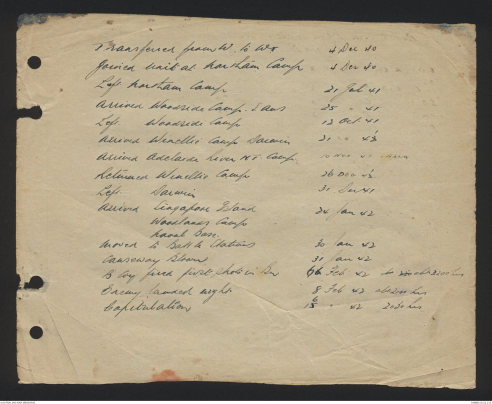 Transferred from W. to Wx 4 Dec 40
Joined unit at Northam Camp 4 Dec 40
Left Northam Camp 21 Jul 41
Arrived Woodside Camp S Aus 25 " 41
Left Woodside Camp 13 Oct 41
Arrived Winellie Camp Darwin 21 " 41
Arrived Adelaide River N T Camp 10 Nov 41
Returned Winellie Camp 26 Dec 41
Left Darwin 31 Dec 41
Arrived Singapore Island 24 Jan 42
Woodlands Camp
Naval Base
Moved to Battle Stations 30 Jan 42
Causeway Blown 31 Jan 42
B Coy fired first shots in Bn 6 Feb 42 2200 hrs
Enemy Landed night 8 Feb 42 hrs
Capitulation 15 " 42 2030 hrs